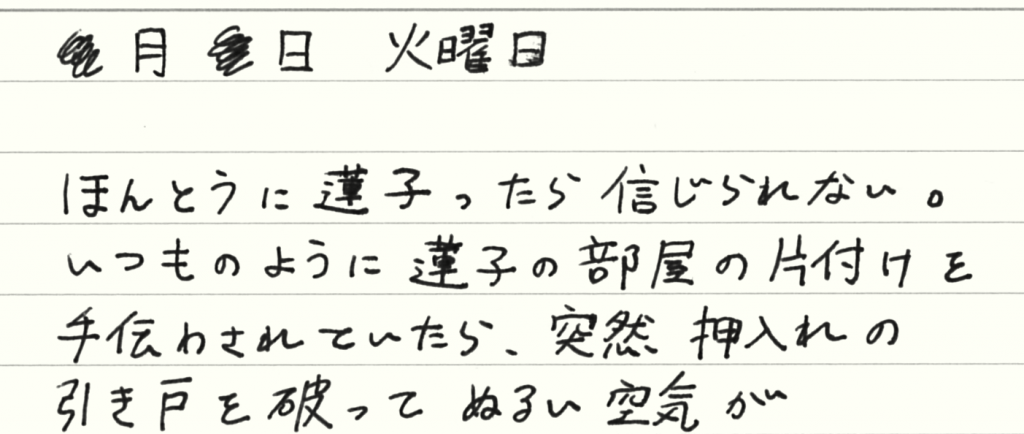 月 日 火曜日
ほんとうに蓮子ったら信じられない。
いつものように蓮子の部屋の片付けを
手伝わされていたら、突然 押入れの
引き戸を破って ぬるい空気が